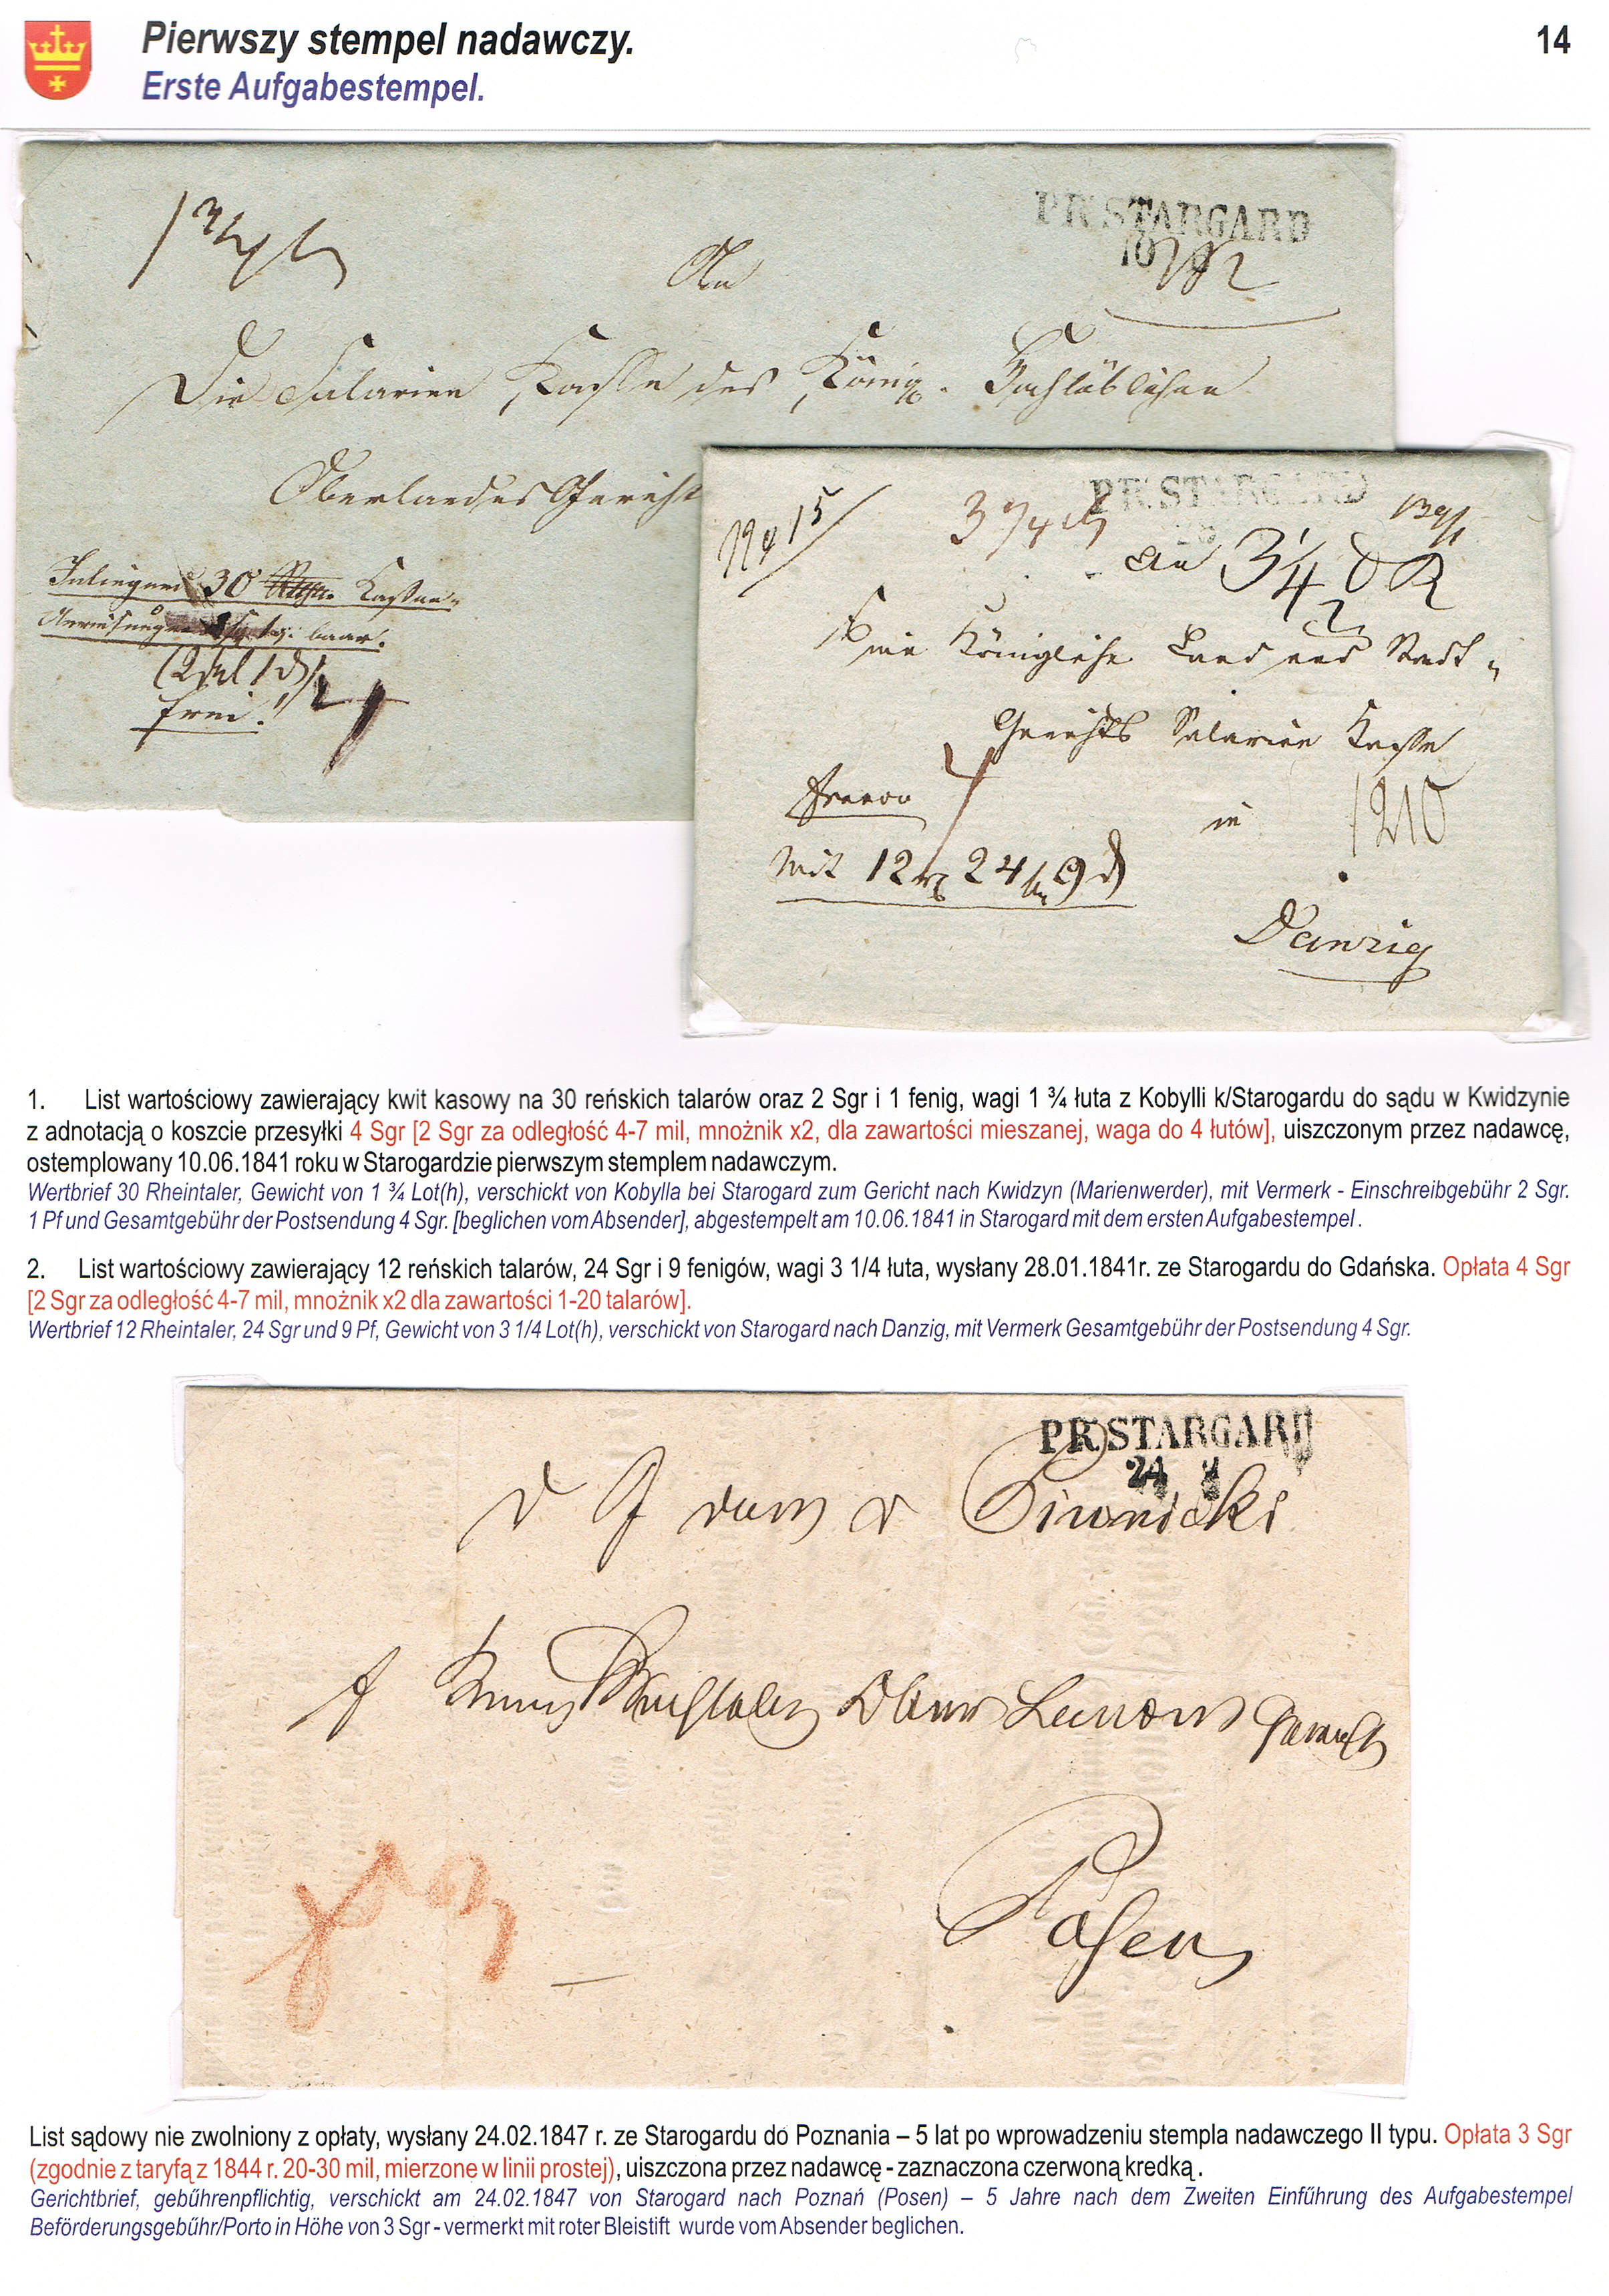 Pierwszy stempel nadawczy.
14
Erste Aufgabestempel.
PR. STARGARD
10
An
Die Salarien Kasse des Königl. Hochlöblichen
Oberlandes Gericht
30
Kassen-
baar.
frei.
4
PR. STARGARD
No 15
An 3 1/4
Eine Königliche Land und Stadt-
Gerichts Salarien Kasse
franco
in
Mit 12 24 9
Danzig
1. List wartościowy zawierający kwit kasowy na 30 reńskich talarów oraz 2 Sgr i 1 fenig, wagi 1 ¾ łuta z Kobylli k/Starogardu do sądu w Kwidzynie
z adnotacją o koszcie przesyłki 4 Sgr [2 Sgr za odległość 4-7 mil, mnożnik x2, dla zawartości mieszanej, waga do 4 łutów], uiszczonym przez nadawcę,
ostemplowany 10.06.1841 roku w Starogardzie pierwszym stemplem nadawczym.
Wertbrief 30 Rheintaler, Gewicht von 1 ¾ Lot(h), verschickt von Kobylla bei Starogard zum Gericht nach Kwidzyn (Marienwerder), mit Vermerk - Einschreibgebühr 2 Sgr.
1 Pf und Gesamtgebühr der Postsendung 4 Sgr. [beglichen vom Absender], abgestempelt am 10.06.1841 in Starogard mit dem ersten Aufgabestempel.
2. List wartościowy zawierający 12 reńskich talarów, 24 Sgr i 9 fenigów, wagi 3 1/4 łuta, wysłany 28.01.1841r. ze Starogardu do Gdańska. Opłata 4 Sgr
[2 Sgr za odległość 4-7 mil, mnożnik x2 dla zawartości 1-20 talarów].
Wertbrief 12 Rheintaler, 24 Sgr und 9 Pf, Gewicht von 3 1/4 Lot(h), verschickt von Starogard nach Danzig, mit Vermerk Gesamtgebühr der Postsendung 4 Sgr.
PR. STARGARD
24 2
Piwnicki
Ober Landes Gericht
Posen
List sądowy nie zwolniony z opłaty, wysłany 24.02.1847 r. ze Starogardu do Poznania – 5 lat po wprowadzeniu stempla nadawczego II typu. Opłata 3 Sgr
(zgodnie z taryfą z 1844 r. 20-30 mil, mierzone w linii prostej), uiszczona przez nadawcę - zaznaczona czerwoną kredką.
Gerichtbrief, gebührenpflichtig, verschickt am 24.02.1847 von Starogard nach Poznań (Posen) – 5 Jahre nach dem Zweiten Einführung des Aufgabestempel
Beförderungsgebühr/Porto in Höhe von 3 Sgr - vermerkt mit roter Bleistift wurde vom Absender beglichen.